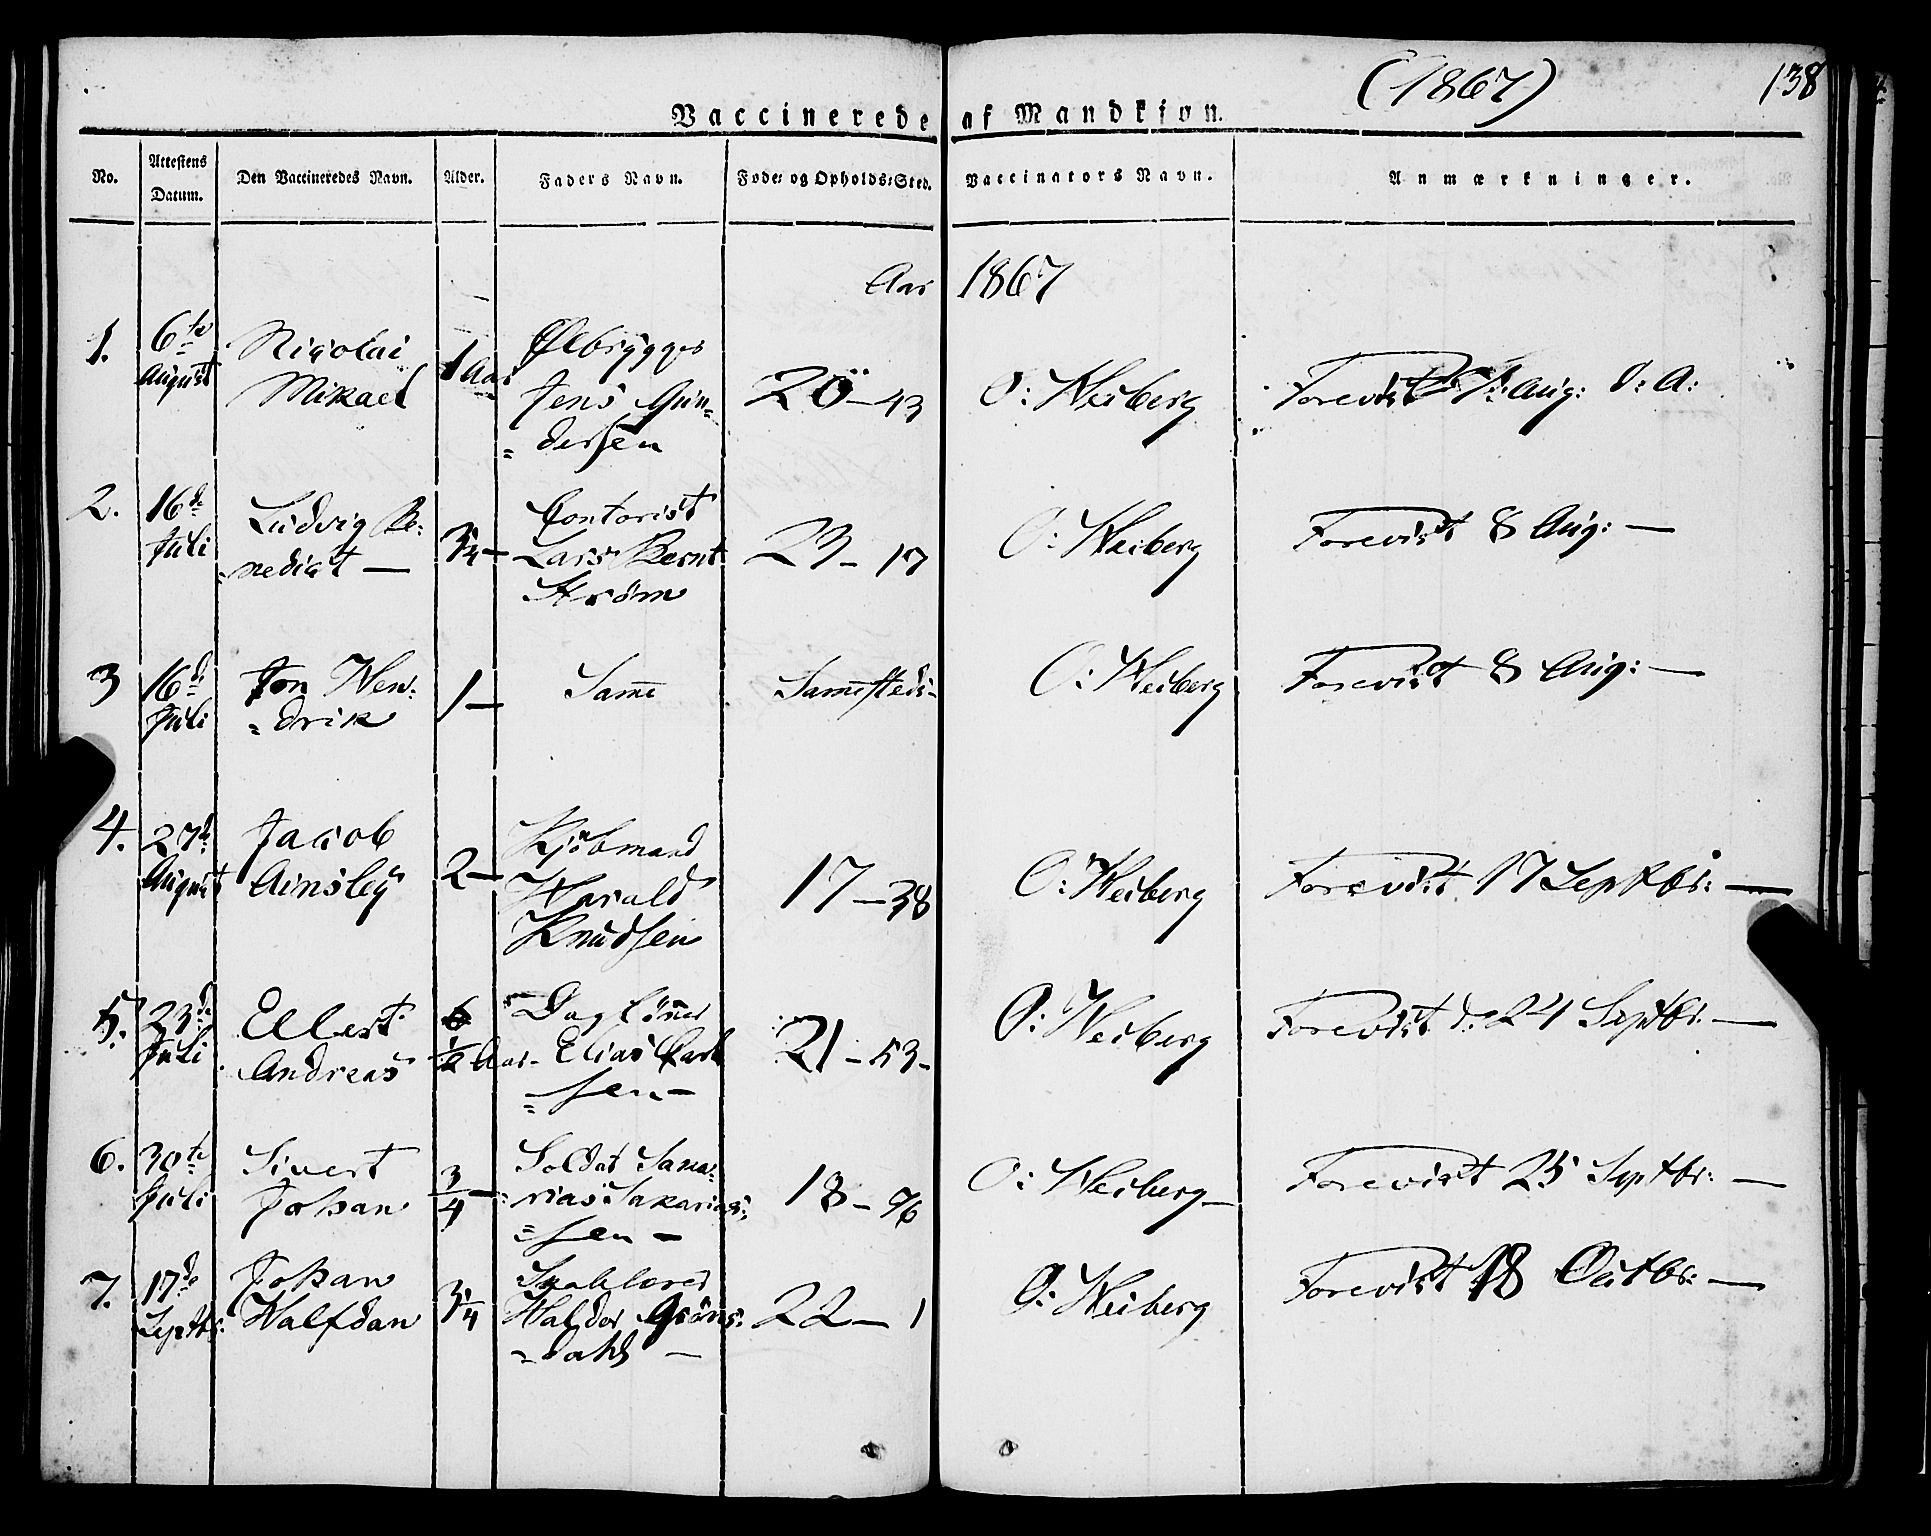 (1867)
138
Vaccinerede af Mandkjøn.
No. Attestens Datum. Den Vaccineredes Navn. Alder. Faders Navn. Føde- og Opholds-Sted. Vaccinators Navn. Anmærkninger.
Aar 1867
1. 6te August Nicolai Mikael 1 Aar Ølbrygger Jens Gun-dersen 20-43 O: Heiberg Forevist 7: Aug: d: A:
2. 16de Juli Ludvig Be-nedict — 3/4 — Contorist Lars Bernt Strøm 23-17 O: Heiberg Forevist 8 Aug: —
3 16de Juli Jon Hen-drik 1 — Samme Sammesteds- O: Heiberg Forevist 8 Aug: —
4. 27de August Jacob Ainsley 2 — Kjöbmand Harald Knudsen 17-38 O: Heiberg Forevist 17 Septbr: —
5. 23de Juli Ellert Andreas 1/2 Aar- Daglønner Elias Carl-sen — 21-53- O: Heiberg Forevist d: 24 Septbr. —
6. 30te Juli Sivert Johan 3/4 — Soldat Saka-rias Sakarias-sen — 18-96 O: Heiberg — Forevist 25 Septbr: —
7. 17de Septbr: Johan Halfdan 3/4 Haldor Gröns-dahl — 22-1 O: Heiberg Forevist 18 Octbr: —